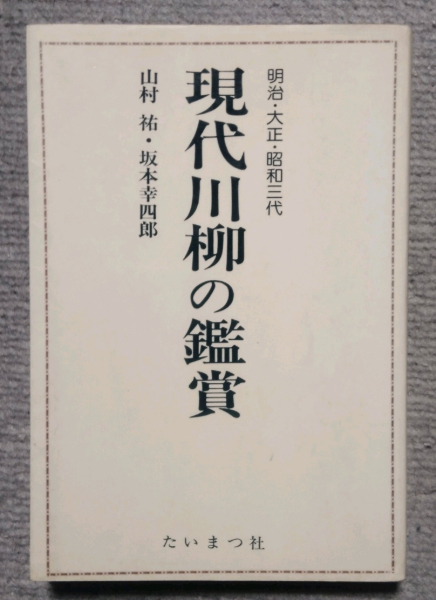 明治・大正・昭和三代
現代川柳の鑑賞
山村 祐・坂本幸四郎
たいまつ社